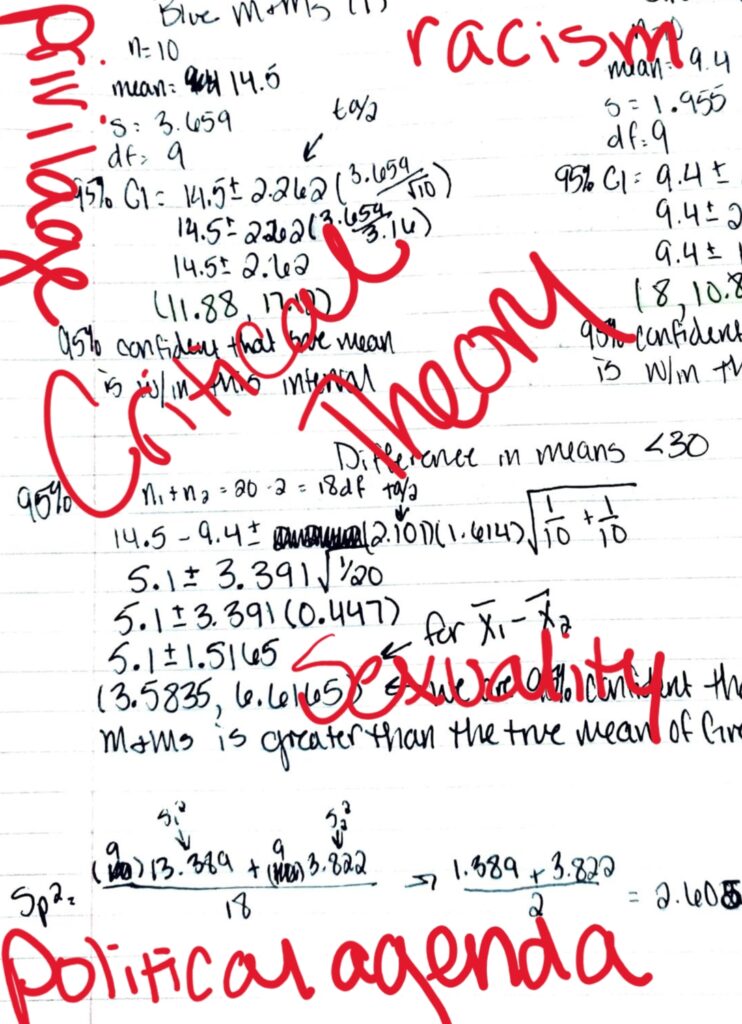 Blue M+Ms (1)
n=10
mean= 14.5
s= 3.659
df= 9
tα/2
95% CI = 14.5 ± 2.262 (3.659/√10)
14.5 ± 2.262 (3.659/3.16)
14.5 ± 2.62
(11.88, 17.12)
95% confident that true mean
is w/in this interval
mean= 9.4
s= 1.955
df= 9
95% CI = 9.4 ±
9.4 ± 2
9.4 ± 1
(8, 10.8
95% confident
is w/in th
privilage
racism
Critical
Theory
Difference in means <30
95% n1+n2 = 20-2 = 18df tα/2
14.5 - 9.4 ± (2.101)(1.614)√1/10 + 1/10
5.1 ± 3.391√1/20
5.1 ± 3.391(0.447)
5.1 ± 1.5165 ← for x̄1 - x̄2
(3.5835, 6.6165) ← we are 95% confident tha
M+Ms is greater than the true mean of Gre
Sexuality
s1² s2²
Sp² = (9)13.389 + (9)3.822 / 18 → 1.389 + 3.822 / 2 = 2.605
political agenda